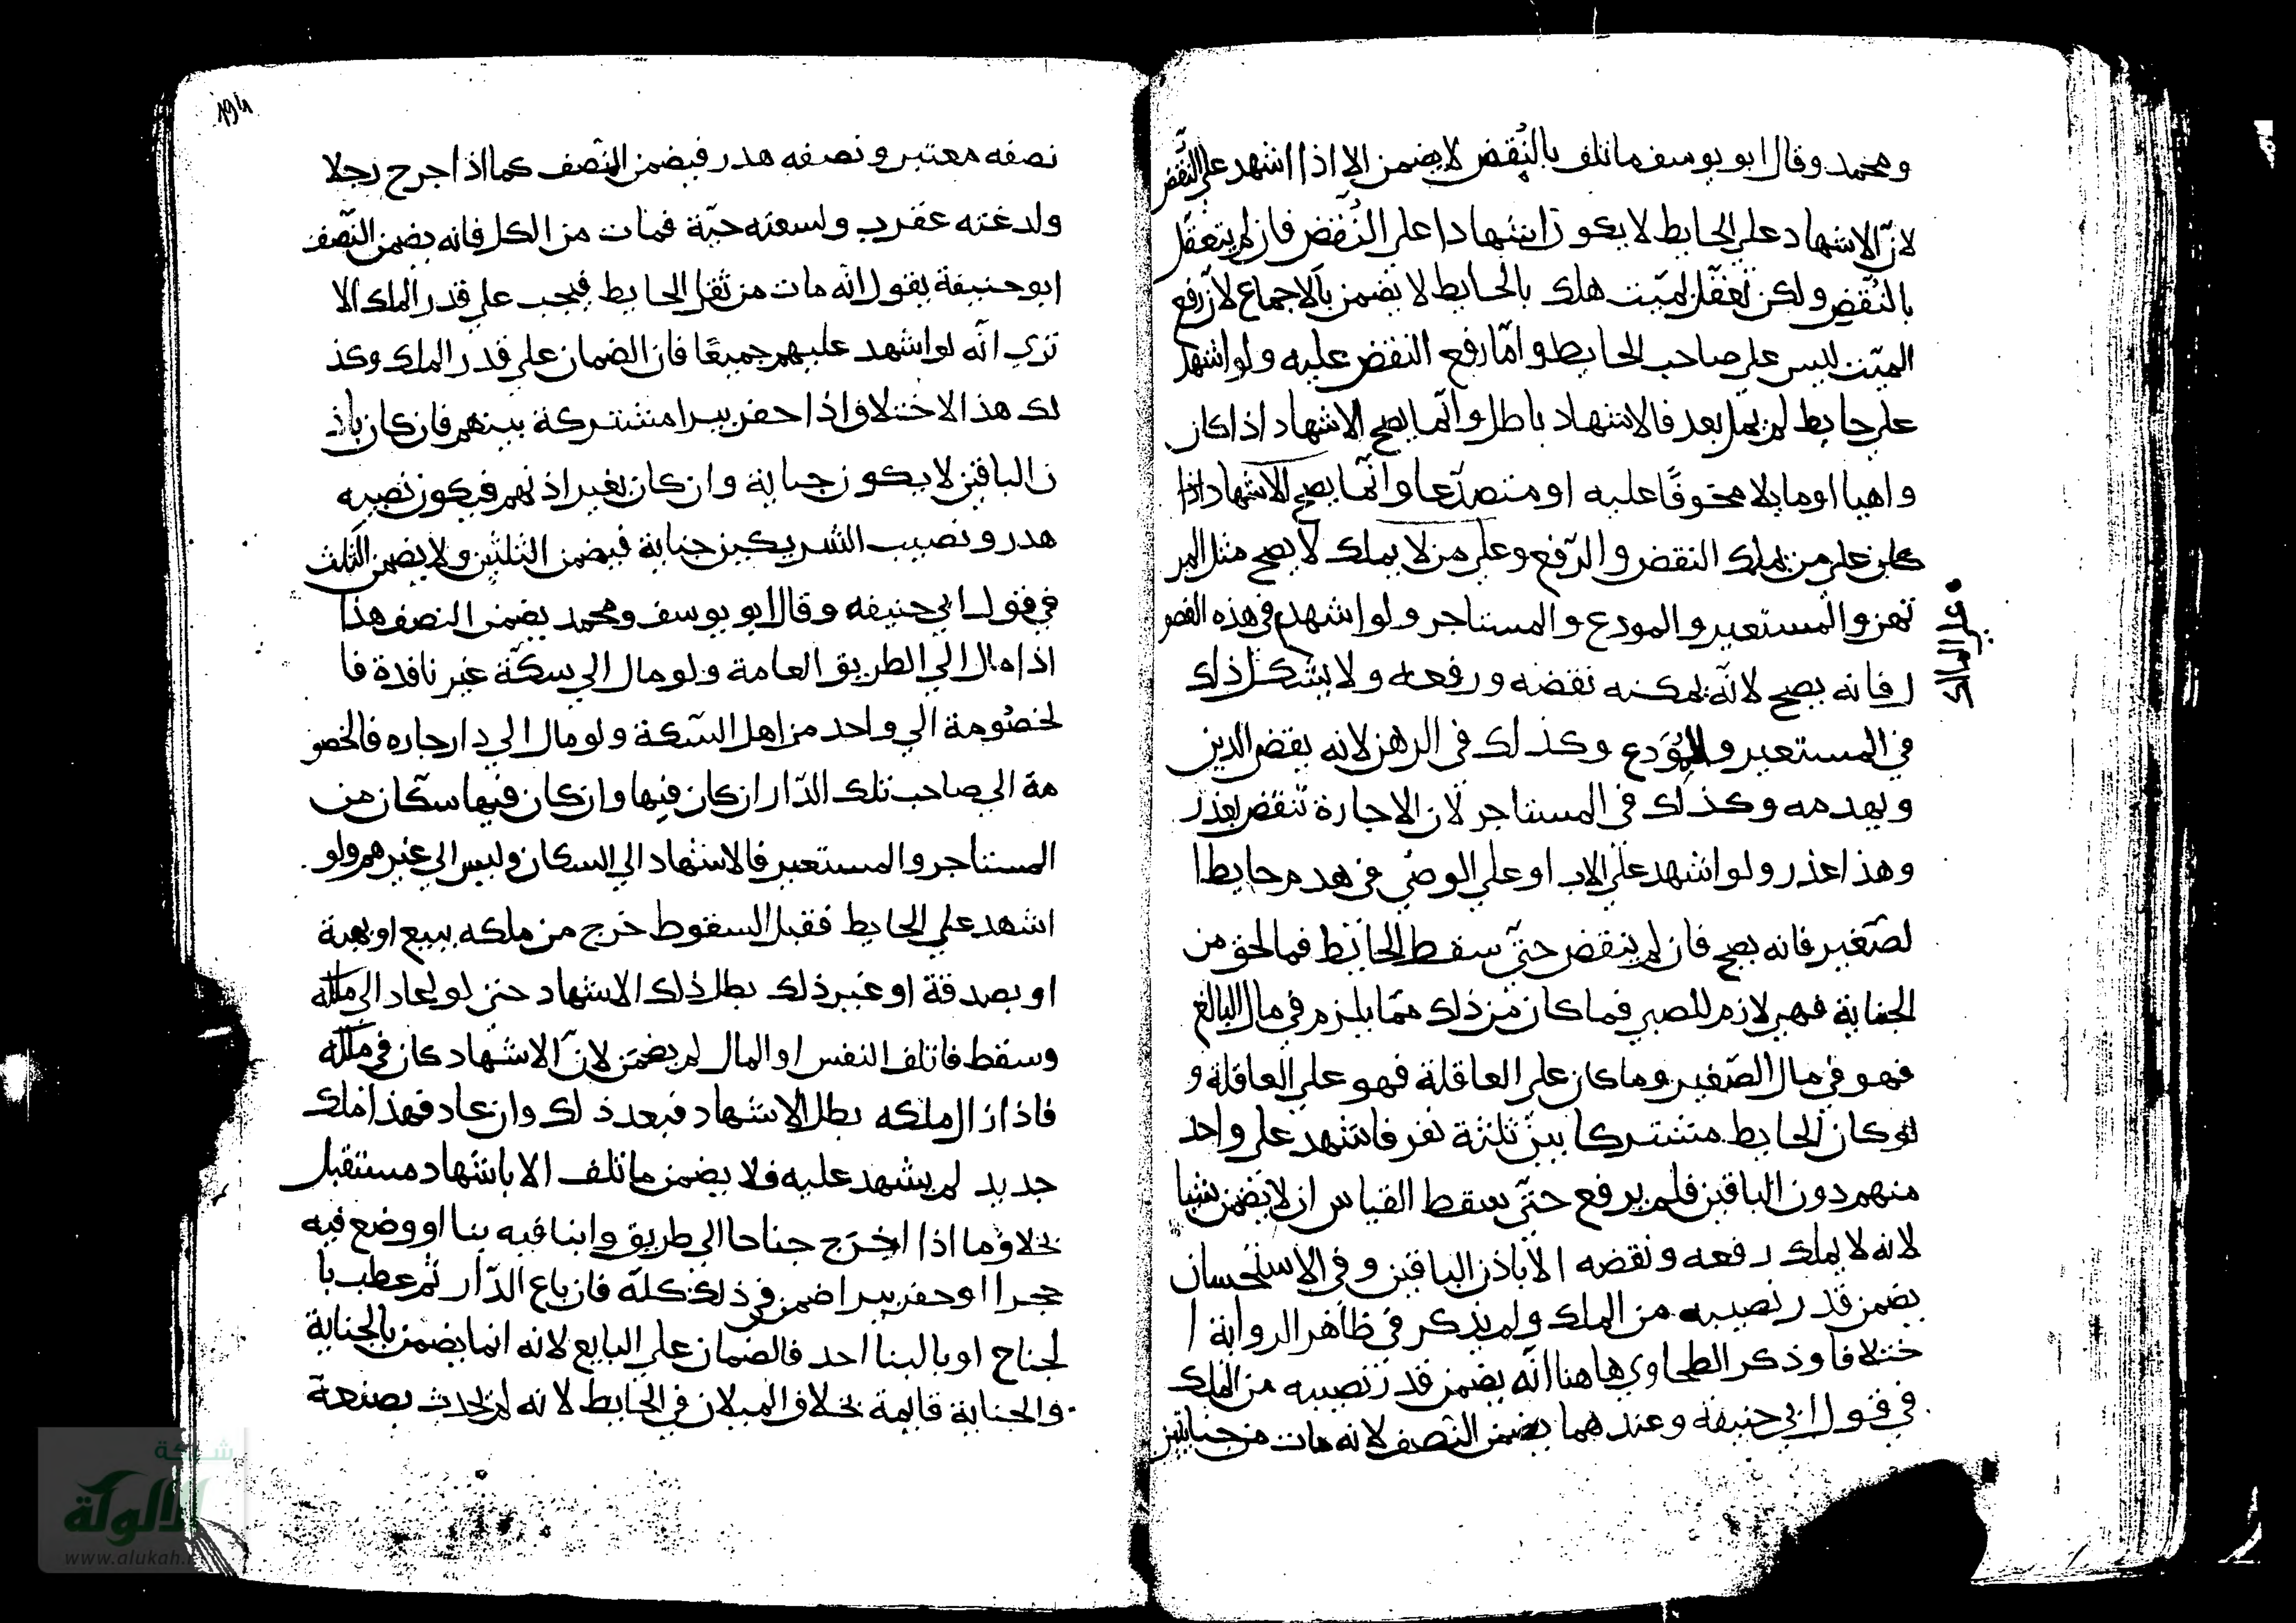 ومحمد وقال ابو يوسف ما تلف بالنُقض لا يضمن الا اذا اشهد علي النُقض
لانّ الاشهاد علي الحايط لا يكون اشهادا علي النُقض فان لم يتعقّل
بالنُقض ولكن تعقّل لميّت هلك بالحايط لا يضمن بالاجماع لان رفع
الميّت ليس علي صاحب الحايط وامّا رفع النقض عليه ولو اشهد
علي حايط لم يمل بعد فالاشهاد باطل وانّما يصح الاشهاد اذا كان
واهيا او مايلا مخوفًا عليه او متصدّعا وانّما يصح الاشهاد اذا
كان علي من يملك النقض والرّفع وعلي من لا يملك لا يصح مثل المر
تهن والمستعير والمودع والمستاجر ولو اشهد في هذه الفصو
علي المالك
ل فانه يصح لانّه يمكنه نقضه ورفعه ولا يشكل ذلك
في المستعير والمُوَدع وكذلك في الرهن لانه يقض الدين
ويهدمه وكذلك في المستاجر لان الاجارة تنقض بعذر
وهذا عذر ولو اشهد علي الاب او علي الوصي في هدم حايط ا
لصّغير فانه يصح فان لم ينقض حتّي سقط الحايط فما لحق من
الجناية فهي لازم للصبي فما كان من ذلك ممّا يلزم في مال البالغ
فهو في مال الصّغير وما كان علي العاقلة فهو علي العاقلة و
لو كان الحايط مشتركا بين ثلثة نفر فاشهد علي واحد
منهم دون الباقين فلم يرفع حتّي سقط القياس ان لا يضمن شيا
لانه لا يملك رفعه ونقضه الا باذن الباقين وفي الاستحسان
يضمن قدر نصيبه من الملك ولم يذكر في ظاهر الرواية ا
ختلافا وذكر الطحاوي هاهنا انّه يضمن قدر نصيبه من الملك
في قول ابي حنيفه وعندهما يضمن النّصف لانه مات من جنايتين
194
نصفه معتبر ونصفه هدر فيضمن النّصف كما اذا جرح رجلا
ولدغته عقرب ولسعته حيّة فمات من الكل فانه يضمن النّصف
ابو حنيفة يقول انّه مات من ثقل الحايط فيجب علي قدر الملك الا
تري انّه لو اشهد عليهم جميعًا فان الضمان علي قدر الملك وكذ
لك هذا الاختلاف اذا حفر بيرا مشتركة بينهم فان كان باذ
ن الباقين لا يكون جناية وان كان بغير اذنهم فيكون نصيبه
هدر ونصيب الشريكين جناية فيضمن الثلثين ولا يضمن الثلث
في قول ابي حنيفه وقال ابو يوسف ومحمد يضمن النصف هذا
اذا مال الي الطريق العامة ولو مال الي سكّة غير نافدة فا
لخصُومة الي واحد من اهل السّكة ولو مال الي دار جاره فالخصو
مة الي صاحب تلك الدّار ان كان فيها وان كان فيها سكّان من
المستاجر والمستعير فالاشهاد الي السكان وليس الي غيرهم ولو
اشهد علي الحايط فقبل السقوط خرج من ملكه ببيع او بهبة
او بصدقة او غير ذلك بطل ذلك الاشهاد حتي لو عاد الي ملكه
وسقط فاتلف النفس او المال لم يضمن لانّ الاشهاد كان في ملكه
فاذا زال ملكه بطل الاشهاد فبعد ذلك وان عاد فهذا ملك
جديد لم يشهد عليه فلا يضمن ما تلف الا باشهاد مستقبل
بخلاف ما اذا اخرج جناحا الي طريق وابنا فيه بنا او وضع فيه
حجرا او حفر بيرا ضمن في ذلك كلّه فان باع الدّار ثم عطب با
لجناح او بالبنا احد فالضمان علي البايع لانه انما يضمن بالجناية
والجناية قايمة بخلاف الميلان في الحايط لانه لم يحدث بصنعه
شبكة
الألوكة